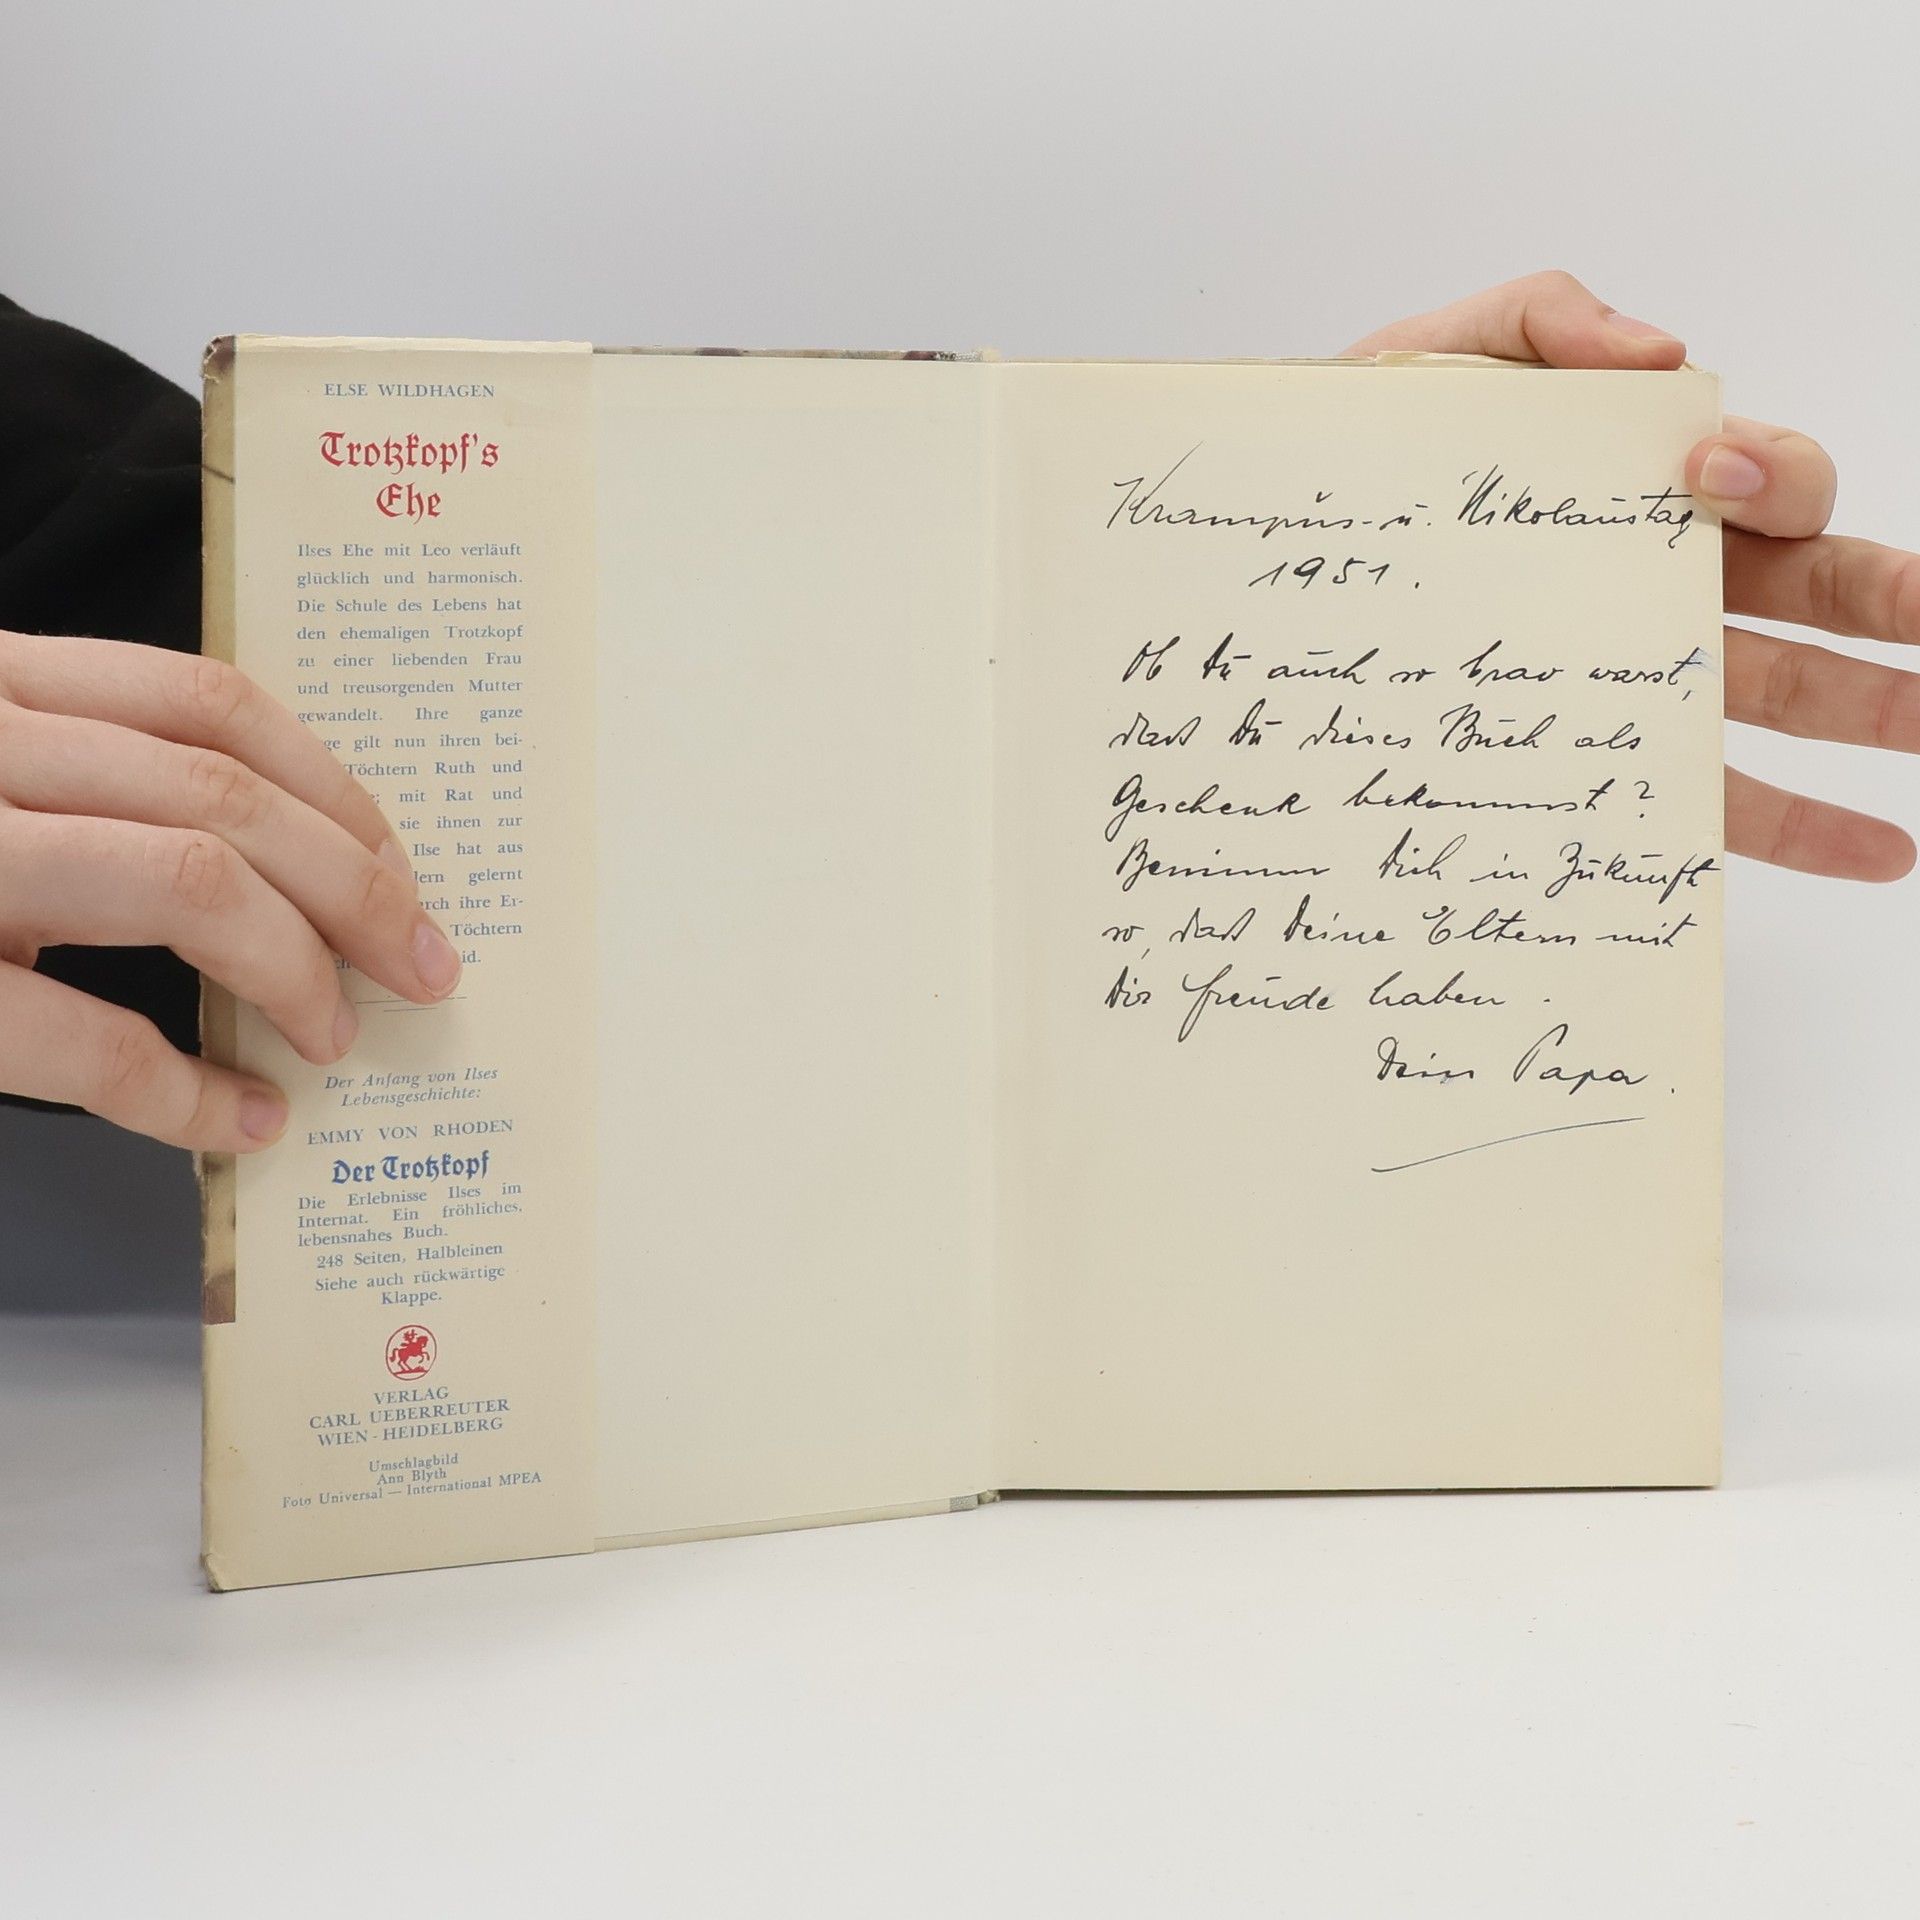 ELSE WILDHAGEN
Trotzkopf's
Ehe
Ilses Ehe mit Leo verläuft
glücklich und harmonisch.
Die Schule des Lebens hat
den ehemaligen Trotzkopf
zu einer liebenden Frau
und treusorgenden Mutter
gewandelt. Ihre ganze
gilt nun ihren bei-
Töchtern Ruth und
mit Rat und
sie ihnen zur
Ilse hat aus
gelernt
ihre Er-
Töchtern
Der Anfang von Ilses
Lebensgeschichte:
EMMY VON RHODEN
Der Trotzkopf
Die Erlebnisse Ilses im
Internat. Ein fröhliches,
lebensnahes Buch.
248 Seiten, Halbleinen
Siehe auch rückwärtige
Klappe.
VERLAG
CARL UEBERREUTER
WIEN - HEIDELBERG
Umschlagbild
Ann Blyth
Foto Universal — International MPEA
Krampus- u. Nikolaustag
1951.
Ob Du auch so brav warst,
daß Du dieses Buch als
Geschenk bekommst?
Benimm Dich in Zukunft
so, daß Deine Eltern mit
Dir Freude haben.
Dein Papa.